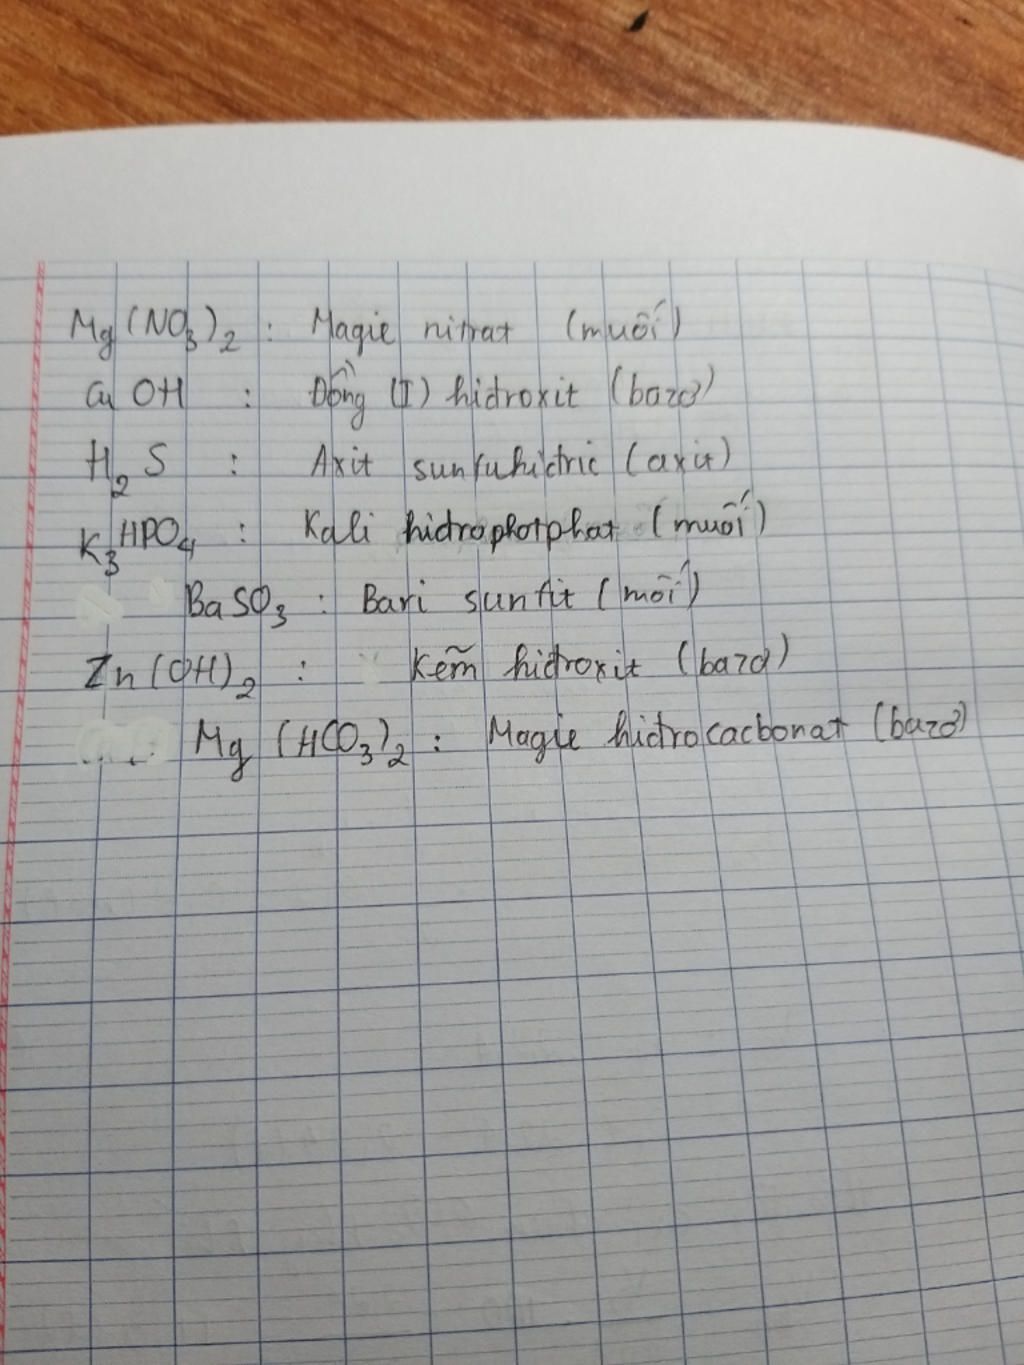 Mg(NO₃)₂ : Magie nitrat (muối)
CuOH : Đồng (I) hidroxit (bazơ)
H₂S : Axit sunfuhidric (axit)
K₃HPO₄ : Kali hidrophotphat (muối)
BaSO₃ : Bari sunfit (mối)
Zn(OH)₂ : Kẽm hidroxit (bazơ)
Mg(HCO₃)₂ : Magie hidrocacbonat (bazơ)